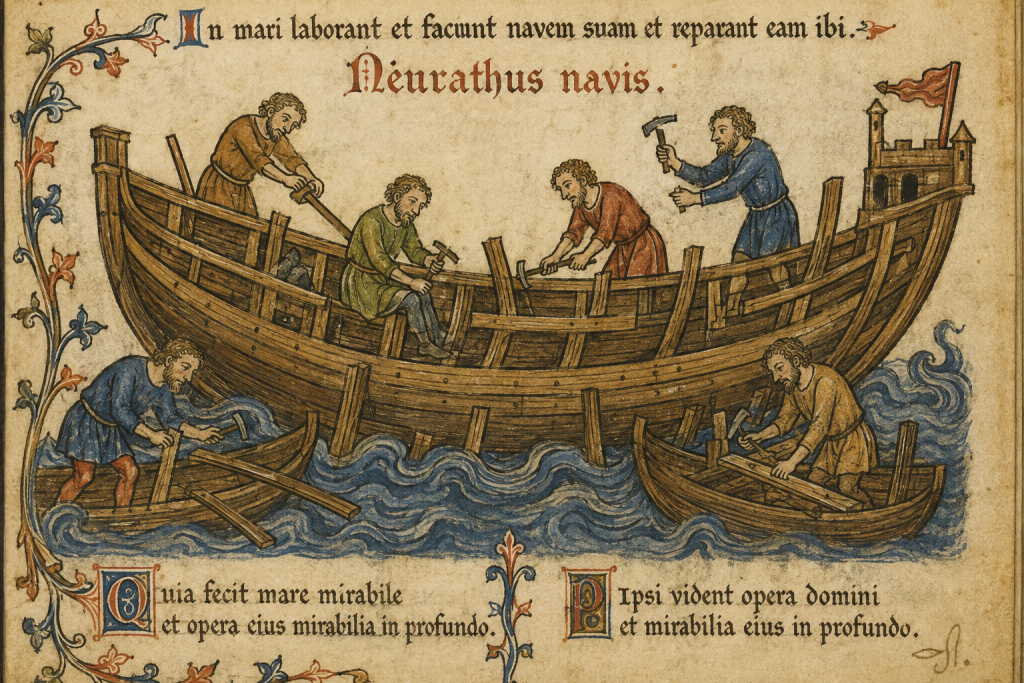 In mari laborant et faciunt navem suam et reparant eam ibi.
Neurathus navis.
Quia fecit mare mirabile
et opera eius mirabilia in profundo.
Ipsi vident opera domini
et mirabilia eius in profundo.